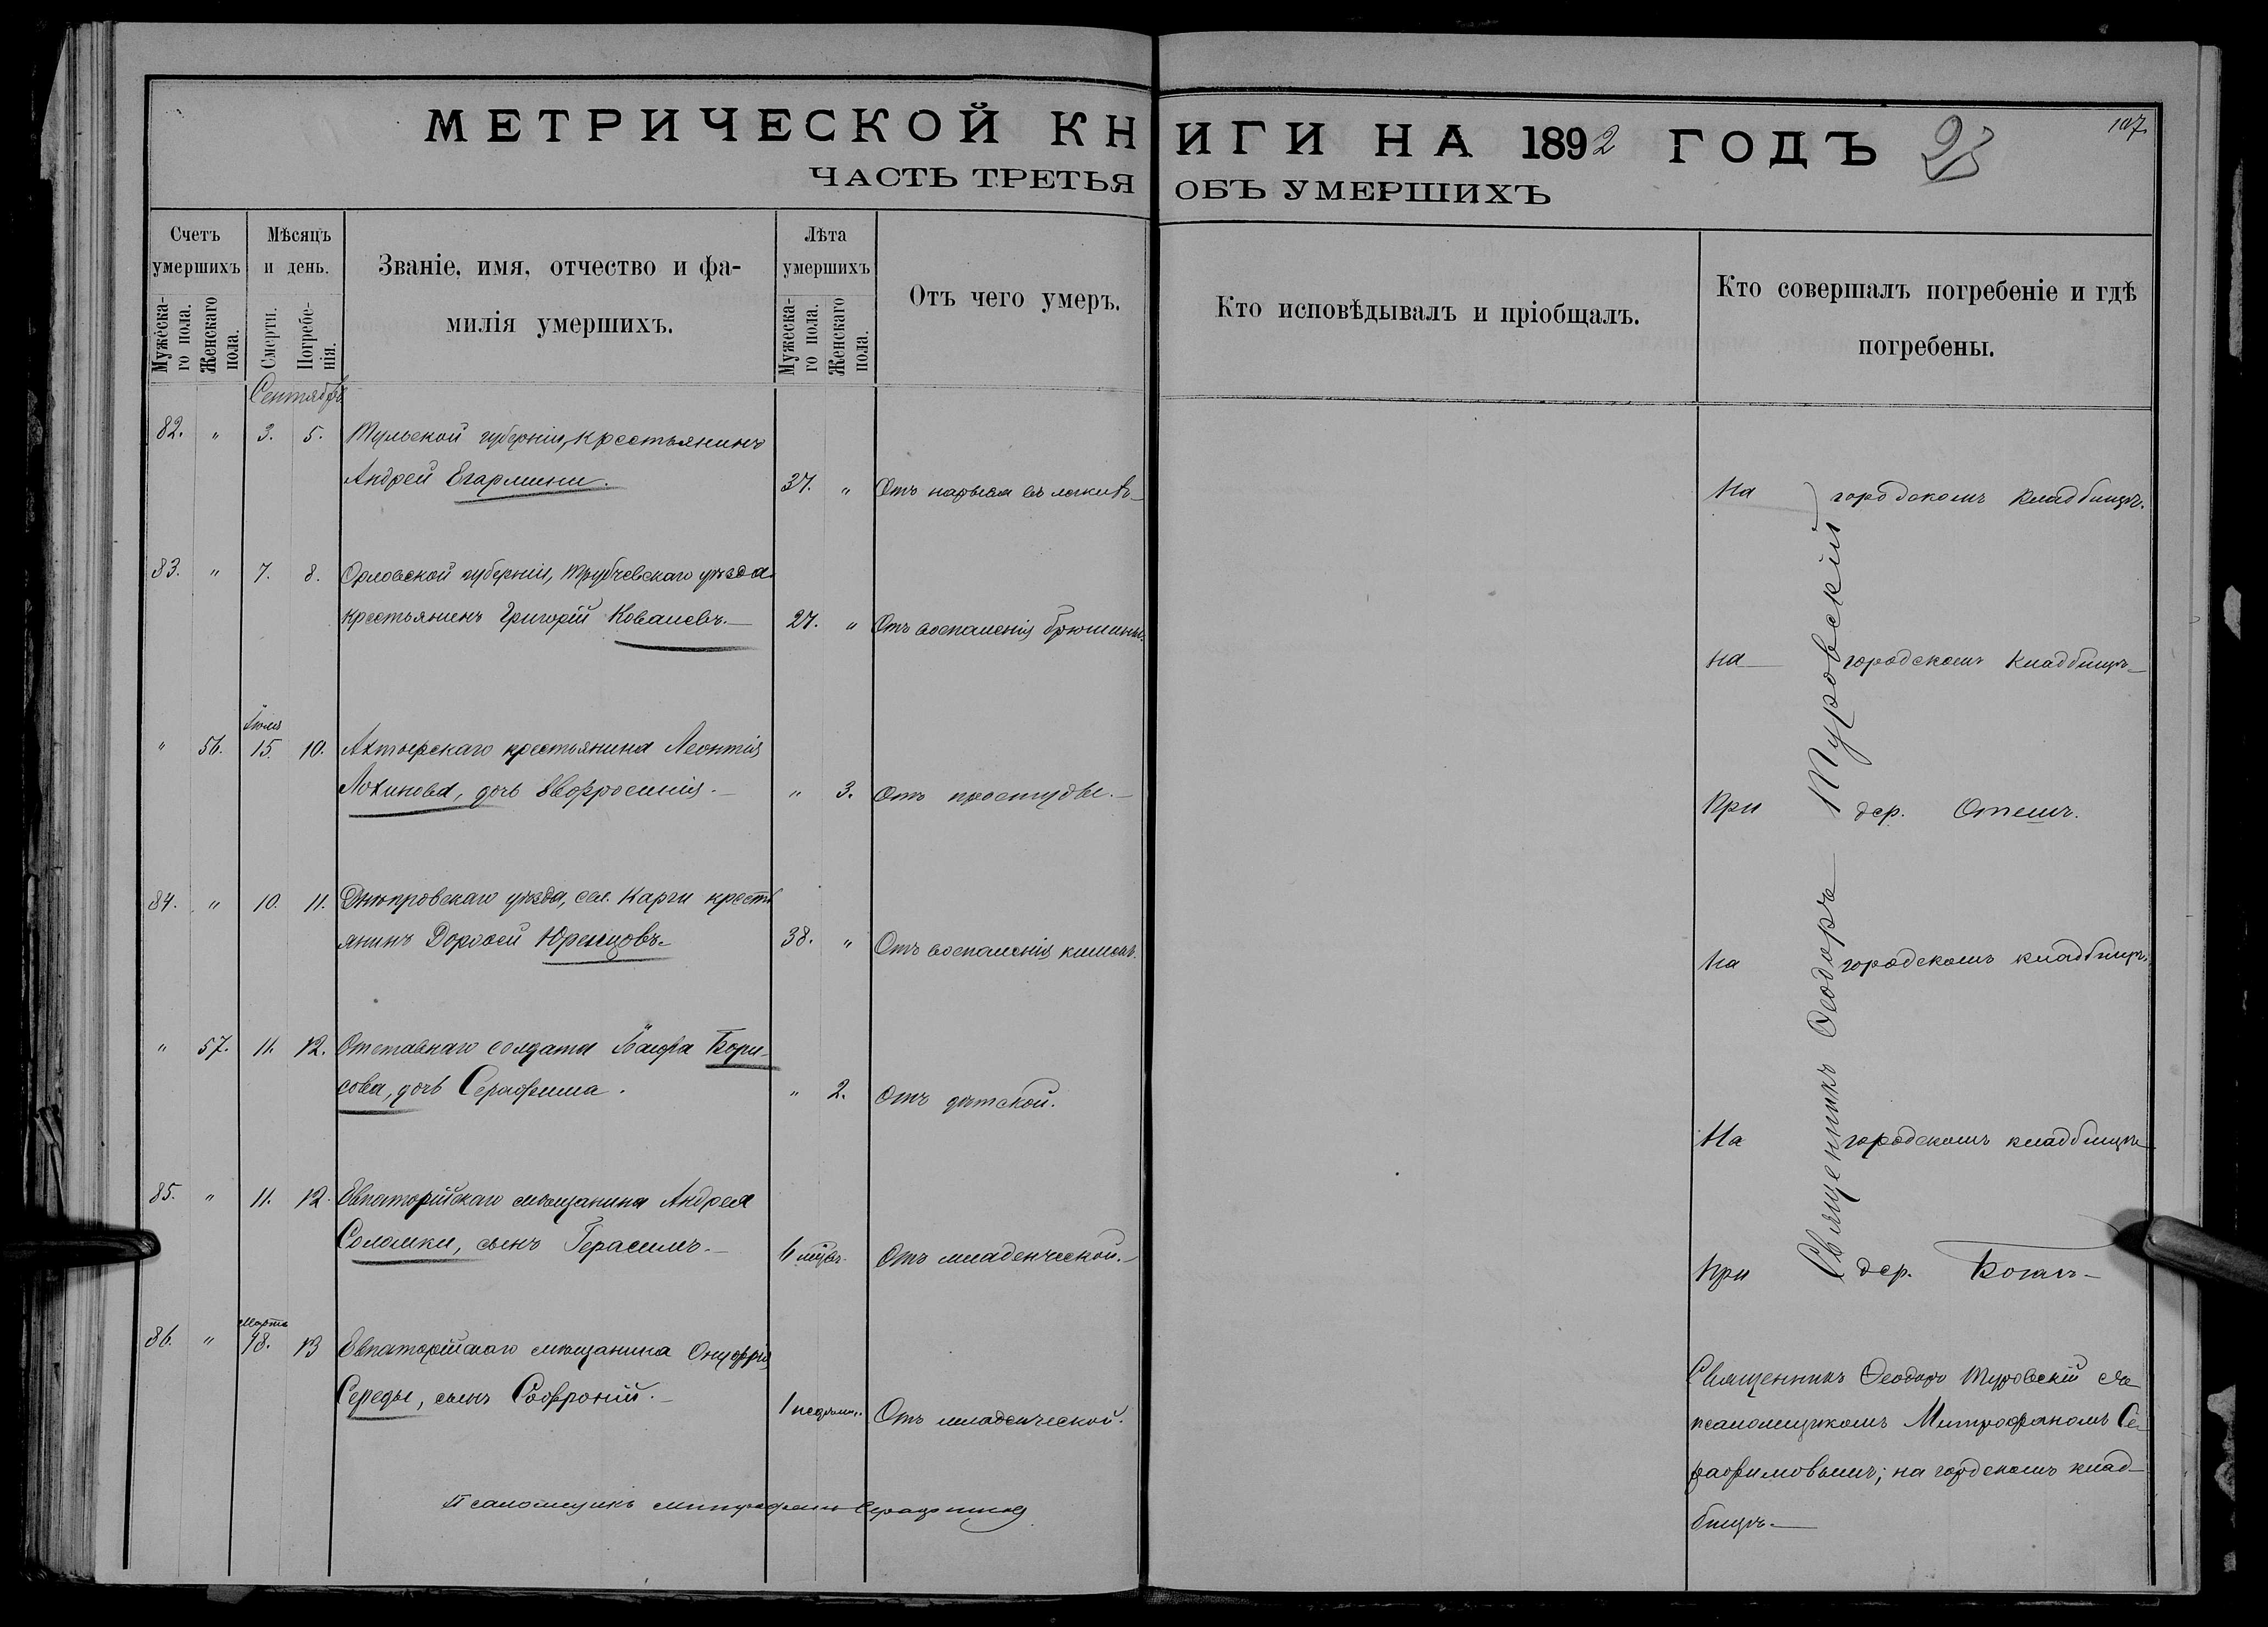 МЕТРИЧЕСКОЙ КНИГИ НА 1892 ГОДЪ 23 107.
ЧАСТЬ ТРЕТЬЯ ОБЪ УМЕРШИХЪ
Счетъ умершихъ
Мужеска-го пола.
Женскаго пола.
Мѣсяцъ и день.
Смерти.
Погребе-нія.
Званіе, имя, отчество и фа-
милія умершихъ.
Лѣта умершихъ
Мужеска-го пола.
Женскаго пола.
Отъ чего умеръ.
Кто исповѣдывалъ и пріобщалъ.
Кто совершалъ погребеніе и гдѣ
погребены.
Сентябрь
82. " 3. 5. Тульской губерніи, крестьянинъ
Андрей 37. " Отъ нарыва въ легкихъ На городскомъ кладбищѣ.
83. " 7. 8. Орловской губерніи, Трубчевскаго уѣзда
крестьянинъ Григорій Ковалевъ. 27. " Отъ воспаленія брюшины. на городскомъ кладбищѣ
Іюля
" 56. 15. 10. Ахтырскаго крестьянина Леонтія
Логинова, дочь Евфросинія. " 3. Отъ простуды. При дер. Отешъ.
84. " 10. 11. Днѣпровскаго уѣзда, сел. Карги кресть
янинъ Дорофей Юренцовъ. 38. " Отъ воспаленія кишекъ. На городскомъ кладбищѣ.
" 57. 11. 12. Отставнаго солдата Бори-
сова, дочь Серафима. " 2. Отъ дѣтской. На городскомъ кладбищѣ
85. " 11. 12. Евпаторійскаго мѣщанина Андрея
Соломки, сынъ Герасимъ. 6 мѣсц. Отъ младенческой. При дер. Богай
Марта
86. " 18. 13 Евпаторійскаго мѣщанина Онуфрія
Середы, сынъ Софроній. 1 недѣли. Отъ младенческой.
Священникъ Ѳеодоръ Туровскій
Священникъ Ѳеодоръ Туровскій съ
псаломщикомъ Митрофаномъ Се-
рафимовымъ; на городскомъ клад-
бищѣ.
Псаломщикъ Митрофанъ Серафимовъ